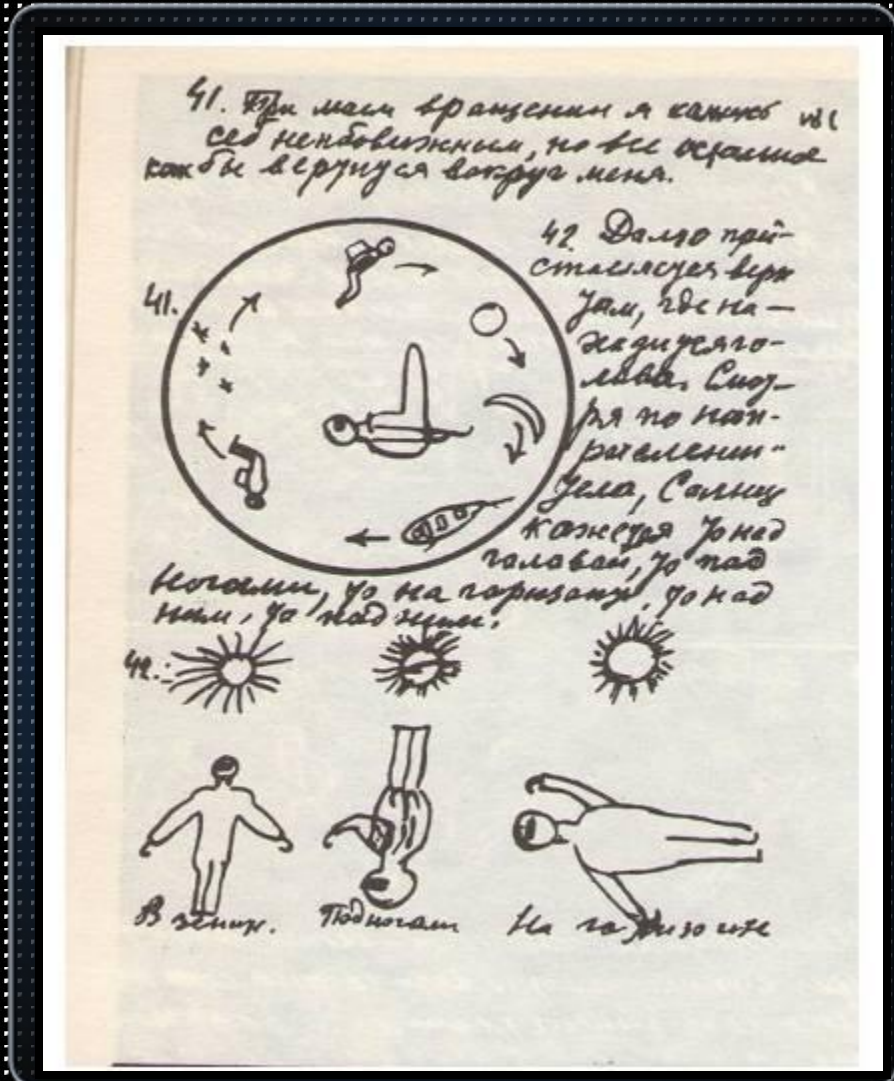 41. При моем вращении я кажусь
себе неподвижным, но все остальное
как бы вертится вокруг меня.
42. Далго при-
ставляется верх
там, где на-
ходится го-
лова. Смот-
ря по нап-
равлению
тела, Солнце
кажется то над
головой, то под
ногами, то на горизонте, то над
ним, то под ним.
41.
42.
В зените.
Под ногами
На горизонте